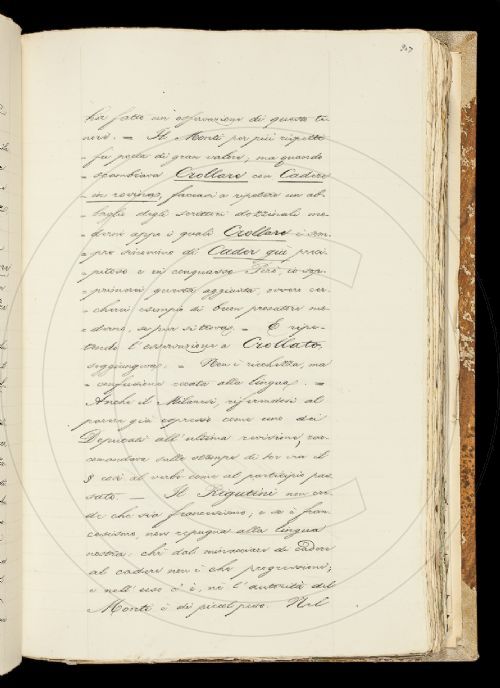 207
ha fatto un'osservazione di questo te-
nore. = Il Monti per più rispetti
« fu poeta di gran valore; ma quando
« scambiava Crollare con Cadere
« in rovina, facevasi a ripetere un ab-
« baglio degli scrittori dozzinali mo-
« derni appo i quali Crollare è sem-
« pre sinonimo di Cader giù preci-
« pitoso e in conquasso. Però, io sop-
« primerei questa aggiunta, ovvero cer-
« cherei esempio di buon prosatore mo-
« derno, se pur si trova. = E ripe-
tendo l'osservazione a Crollato,
soggiungeva: = Non è ricchezza, ma
« confusione recata alla lingua. =
Anche il Milanesi, riferendosi al
parere già espresso come uno dei
Deputati all'ultima revisione, rac-
comandava sulle stampe di tor via il
§ così al verbo come al participio pas-
sato. — Il Rigutini non cre-
de che sia francesismo; e se è fran-
cesismo, non repugna alla lingua
nostra, chè dal minacciare di cadere
al cadere non è che progressione;
e nell'uso c'è, nè l'autorità del
Monti è di piccol peso. Nel